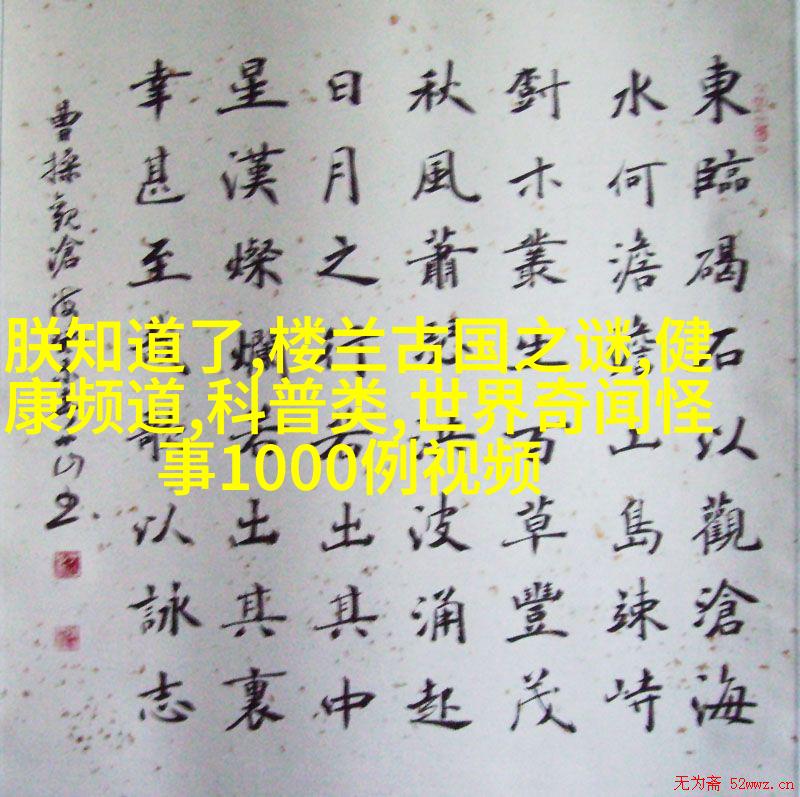 東臨碣石以觀滄海
水何澹澹山島竦峙
木叢生百草豐茂
秋風蕭瑟洪波涌起
日月之行若出其中
星漢燦爛若出其裏
幸甚至哉歌以詠志
曹操觀滄海
朕知道了,楼兰古国之谜,健
康频道,科普类,世界奇闻怪
事1000例视频
无为斋 52wwz.cn